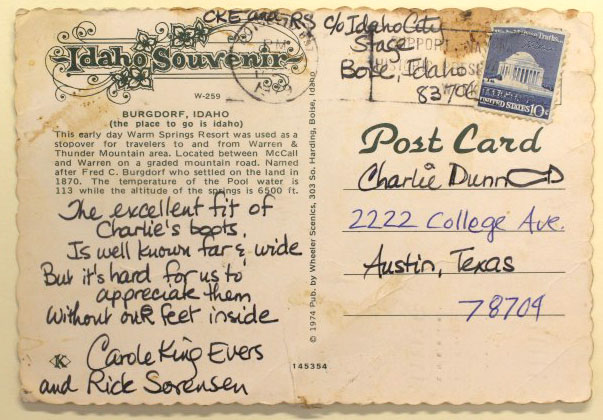 CKE and RS c/o Idaho City
Stage
Boise, Idaho
83706
SUPPORT
10c
UNITED STATES
Idaho Souvenir
W-259
BURGDORF, IDAHO
(the place to go is idaho)
This early day Warm Springs Resort was used as a
stopover for travelers to and from Warren &
Thunder Mountain area. Located between McCall
and Warren on a graded mountain road. Named
after Fred C. Burgdorf who settled on the land in
1870. The temperature of the Pool water is
113 while the altitude of the springs is 6500 ft.
The excellent fit of
Charlie's boots,
Is well known far & wide
But it's hard for us to
appreciate them
Without our feet inside
Carole King Evers
and Rick Sorensen
K
© 1974 Pub. by Wheeler Scenics, 303 So. Harding, Boise, Idaho
145354
Post Card
Charlie Dunn
2222 College Ave.
Austin, Texas
78704